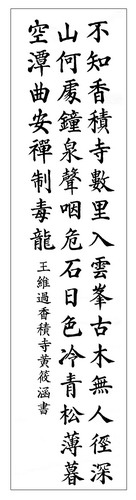 不知香積寺數里入雲峯古木無人徑深
山何處鐘泉聲咽危石日色冷青松薄暮
空潭曲安禪制毒龍
王維過香積寺黃筱涵書